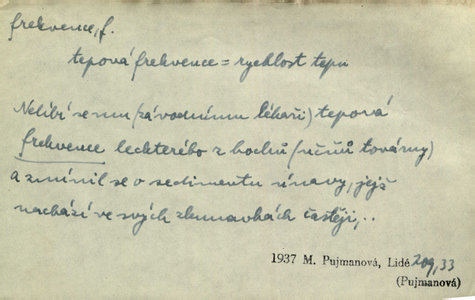 frekvence, f.
tepová frekvence = rychlost tepu
Nelíbí se mu (závodnímu lékaři) tepová
frekvence leckterého z hochů (učňů továrny)
a zmínil se o sedimentu únavy, jejž
nachází ve svých zkumavkách častěji, ..
1937 M. Pujmanová, Lidé 209, 33
(Pujmanová)